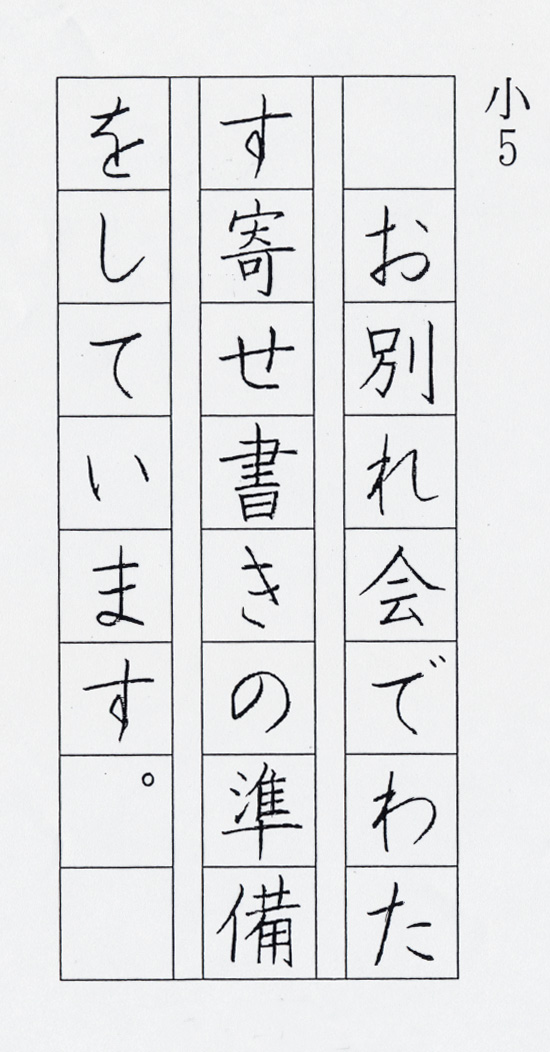 小5
お別れ会でわた
す寄せ書きの準備
をしています。